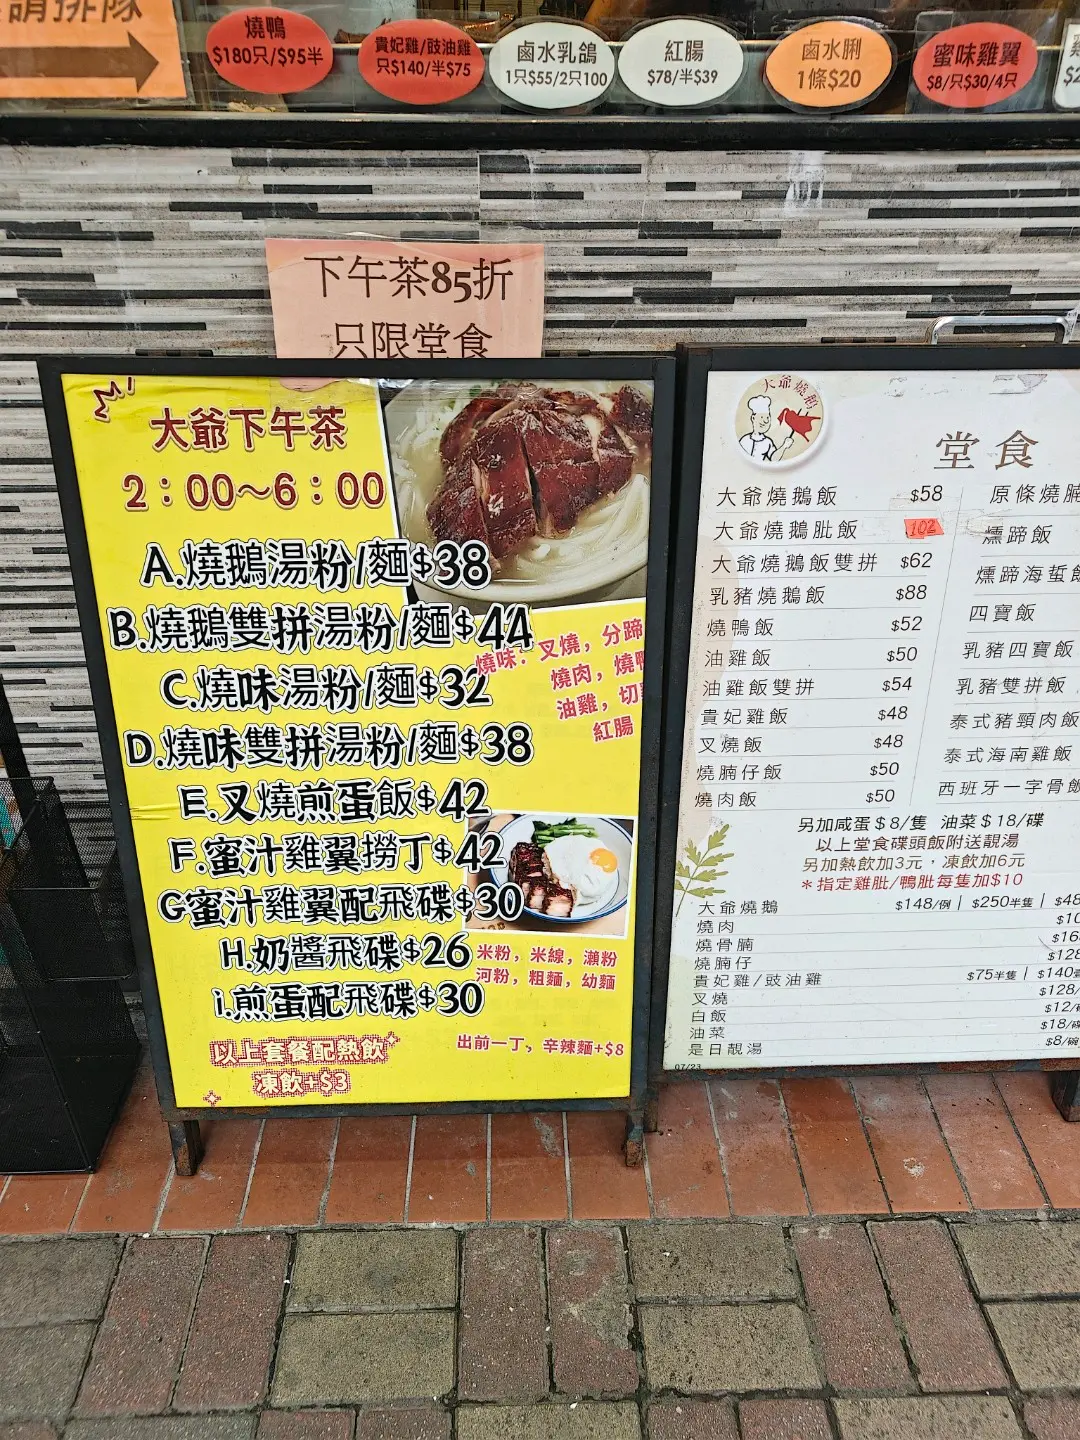 請排隊
燒鴨
$180只/$95半
貴妃雞/豉油雞
只$140/半$75
鹵水乳鴿
1只$55/2只100
紅腸
$78/半$39
鹵水脷
1條$20
蜜味雞翼
$8/只$30/4只
下午茶85折
只限堂食
大爺下午茶
2：00～6：00
A.燒鵝湯粉/麵$38
B.燒鵝雙拼湯粉/麵$44
C.燒味湯粉/麵$32
D.燒味雙拼湯粉/麵$38
E.叉燒煎蛋飯$42
F.蜜汁雞翼撈丁$42
G蜜汁雞翼配飛碟$30
H.奶醬飛碟$26
i.煎蛋配飛碟$30
燒味：叉燒，分蹄
燒肉，燒鴨
油雞，切
紅腸
米粉，米線，瀨粉
河粉，粗麵，幼麵
以上套餐配熱飲
凍飲+$3
出前一丁，辛辣麵+$8
大爺燒鵝
堂食
大爺燒鵝飯 $58
大爺燒鵝髀飯 102
大爺燒鵝飯雙拼 $62
乳豬燒鵝飯 $88
燒鴨飯 $52
油雞飯 $50
油雞飯雙拼 $54
貴妃雞飯 $48
叉燒飯 $48
燒腩仔飯 $50
燒肉飯 $50
原條燒腩
燻蹄飯
燻蹄海蜇飯
四寶飯
乳豬四寶飯
乳豬雙拼飯
泰式豬頸肉飯
泰式海南雞飯
西班牙一字骨飯
另加咸蛋$8/隻 油菜$18/碟
以上堂食碟頭飯附送靚湯
另加熱飲加3元，凍飲加6元
＊指定雞髀/鴨髀每隻加$10
大爺燒鵝 $148/例 | $250半隻 | $48
燒肉 $10
燒骨腩 $16
燒腩仔 $128
貴妃雞/豉油雞 $75半隻 | $140
叉燒 $128/
白飯 $12/
油菜 $18/碟
是日靚湯 $8/碗
07/23